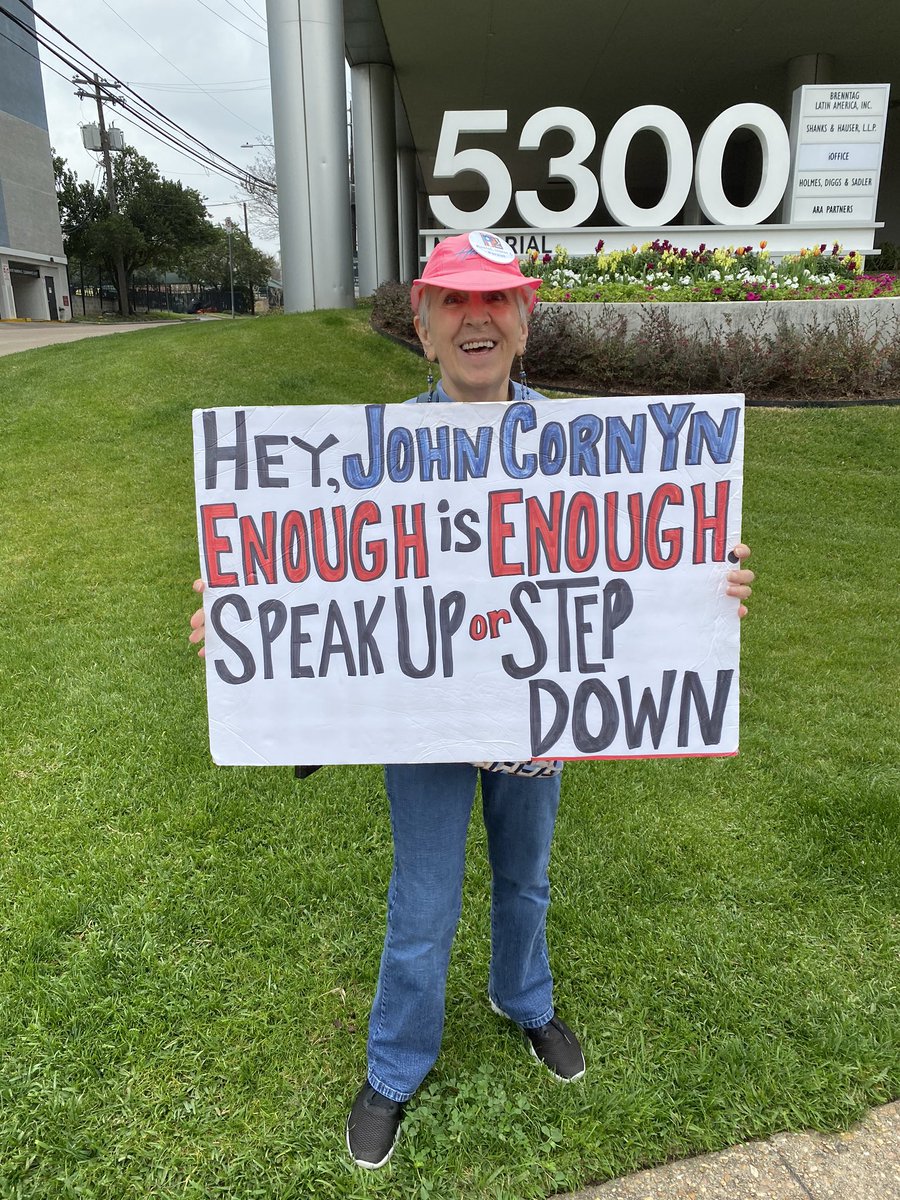 5300
BRENNTAG
LATIN AMERICA, INC.
SHANKS & HAUSER, L.L.P.
iOFFICE
HOLMES, DIGGS & SADLER
ARA PARTNERS
HEY, JOHN CORNYN
ENOUGH is ENOUGH.
SPEAK UP or STEP
DOWN